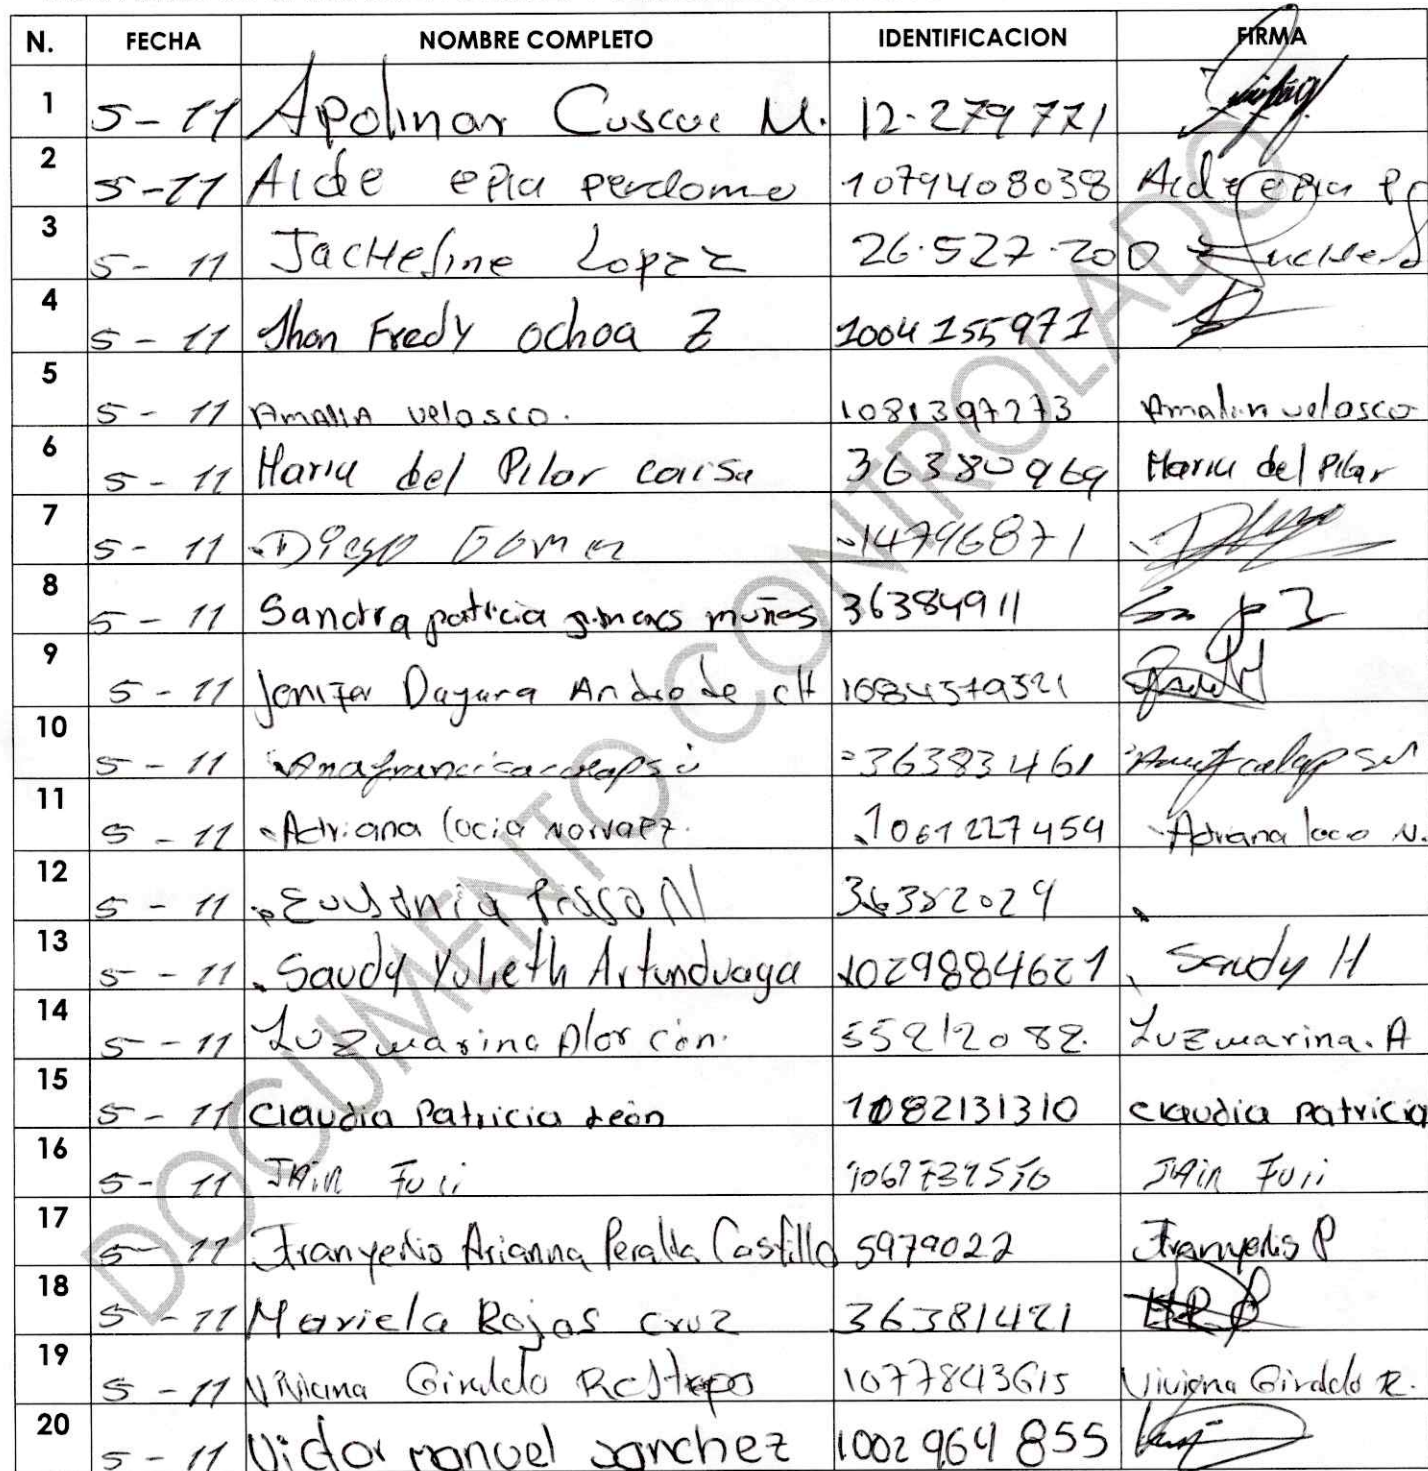 N. FECHA NOMBRE COMPLETO IDENTIFICACION FIRMA
1 5-11 Apolinar Cuscue M. 12.279771
2 5-11 Aide epia perdomo 1079408038 Aide epia P
3 5-11 Jackeline Lopez 26.527.200
4 5-11 Jhon Fredy ochoa Z 1004155971
5 5-11 Amalia velasco. 1081397273 Amalia velasco
6 5-11 Maria del Pilar caisa 36380969 Maria del Pilar
7 5-11 Diego Gomez 14796871
8 5-11 Sandra patricia muñas 36384911
9 5-11 Jenifer Dayana Andrade cH 1084579321
10 5-11 Ana francisca 36383461
11 5-11 Adriana locia Norvaez. 1061227454 Adriana locia N.
12 5-11 36382029
13 5-11 Saudy Yulieth Artunduaga 1029884621 Saudy H
14 5-11 Luz marina Alarcon. 55212082. Luz marina. A
15 5-11 Claudia Patricia León 1082131310 claudia patricia
16 5-11 JAin 
17 5-11 Franyelis Arianna Peralta Castillo 5979022 Franyelis P
18 5-11 Mariela Rojas cruz 36381421
19 5-11 Viviana Giraldo Restrepo 1077843615 Viviana Giraldo R.
20 5-11 Victor manuel sanchez 1002964855
DOCUMENTO CONTROLADO